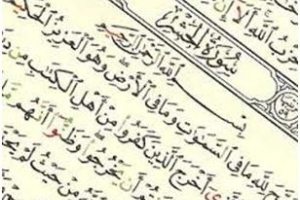 حِزْبُ اللَّهِ أَلَا إِنَّ
سُورَةُ الْحَشْرِ
بِسْمِ اللَّهِ الرَّحْمَٰنِ الرَّحِيمِ
لِلَّهِ مَا فِى السَّمَٰوَٰتِ وَمَا فِى الْأَرْضِ وَهُوَ الْعَزِيزُ الْحَكِيمُ
أَخْرَجَ الَّذِينَ كَفَرُوا مِنْ أَهْلِ الْكِتَٰبِ مِن
أَن يَخْرُجُوا وَظَنُّوا أَنَّهُم
مِنْ حَيْثُ لَمْ